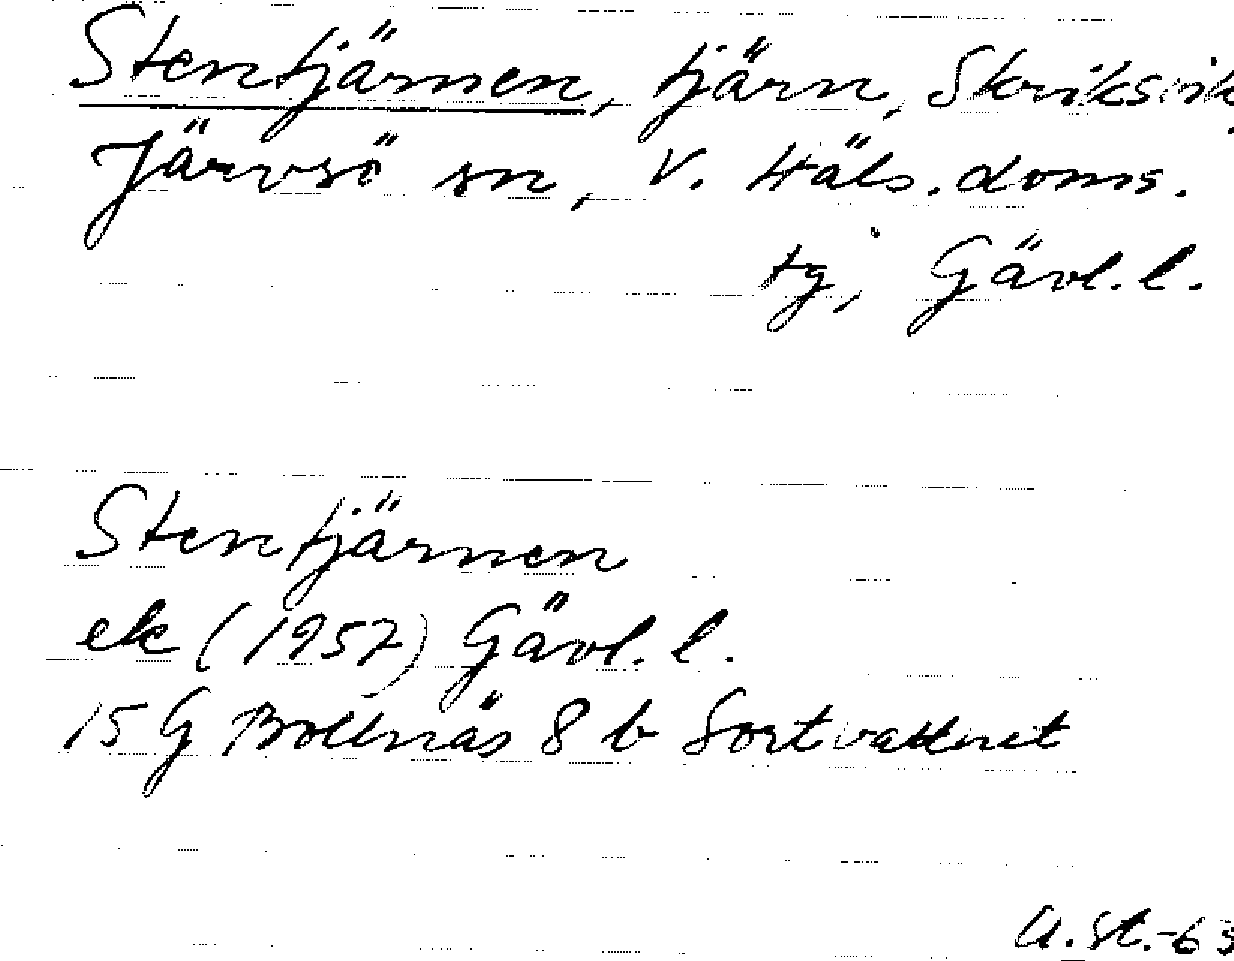 Stentjärnen, tjärn, Skriksvik,
Järvsö sn, V. Häls. doms.
tg, Gävl. l.
Stentjärnen
ek (1957) Gävl. l.
15 G Bollnäs 8 b Sortvattnet
A. St. -63